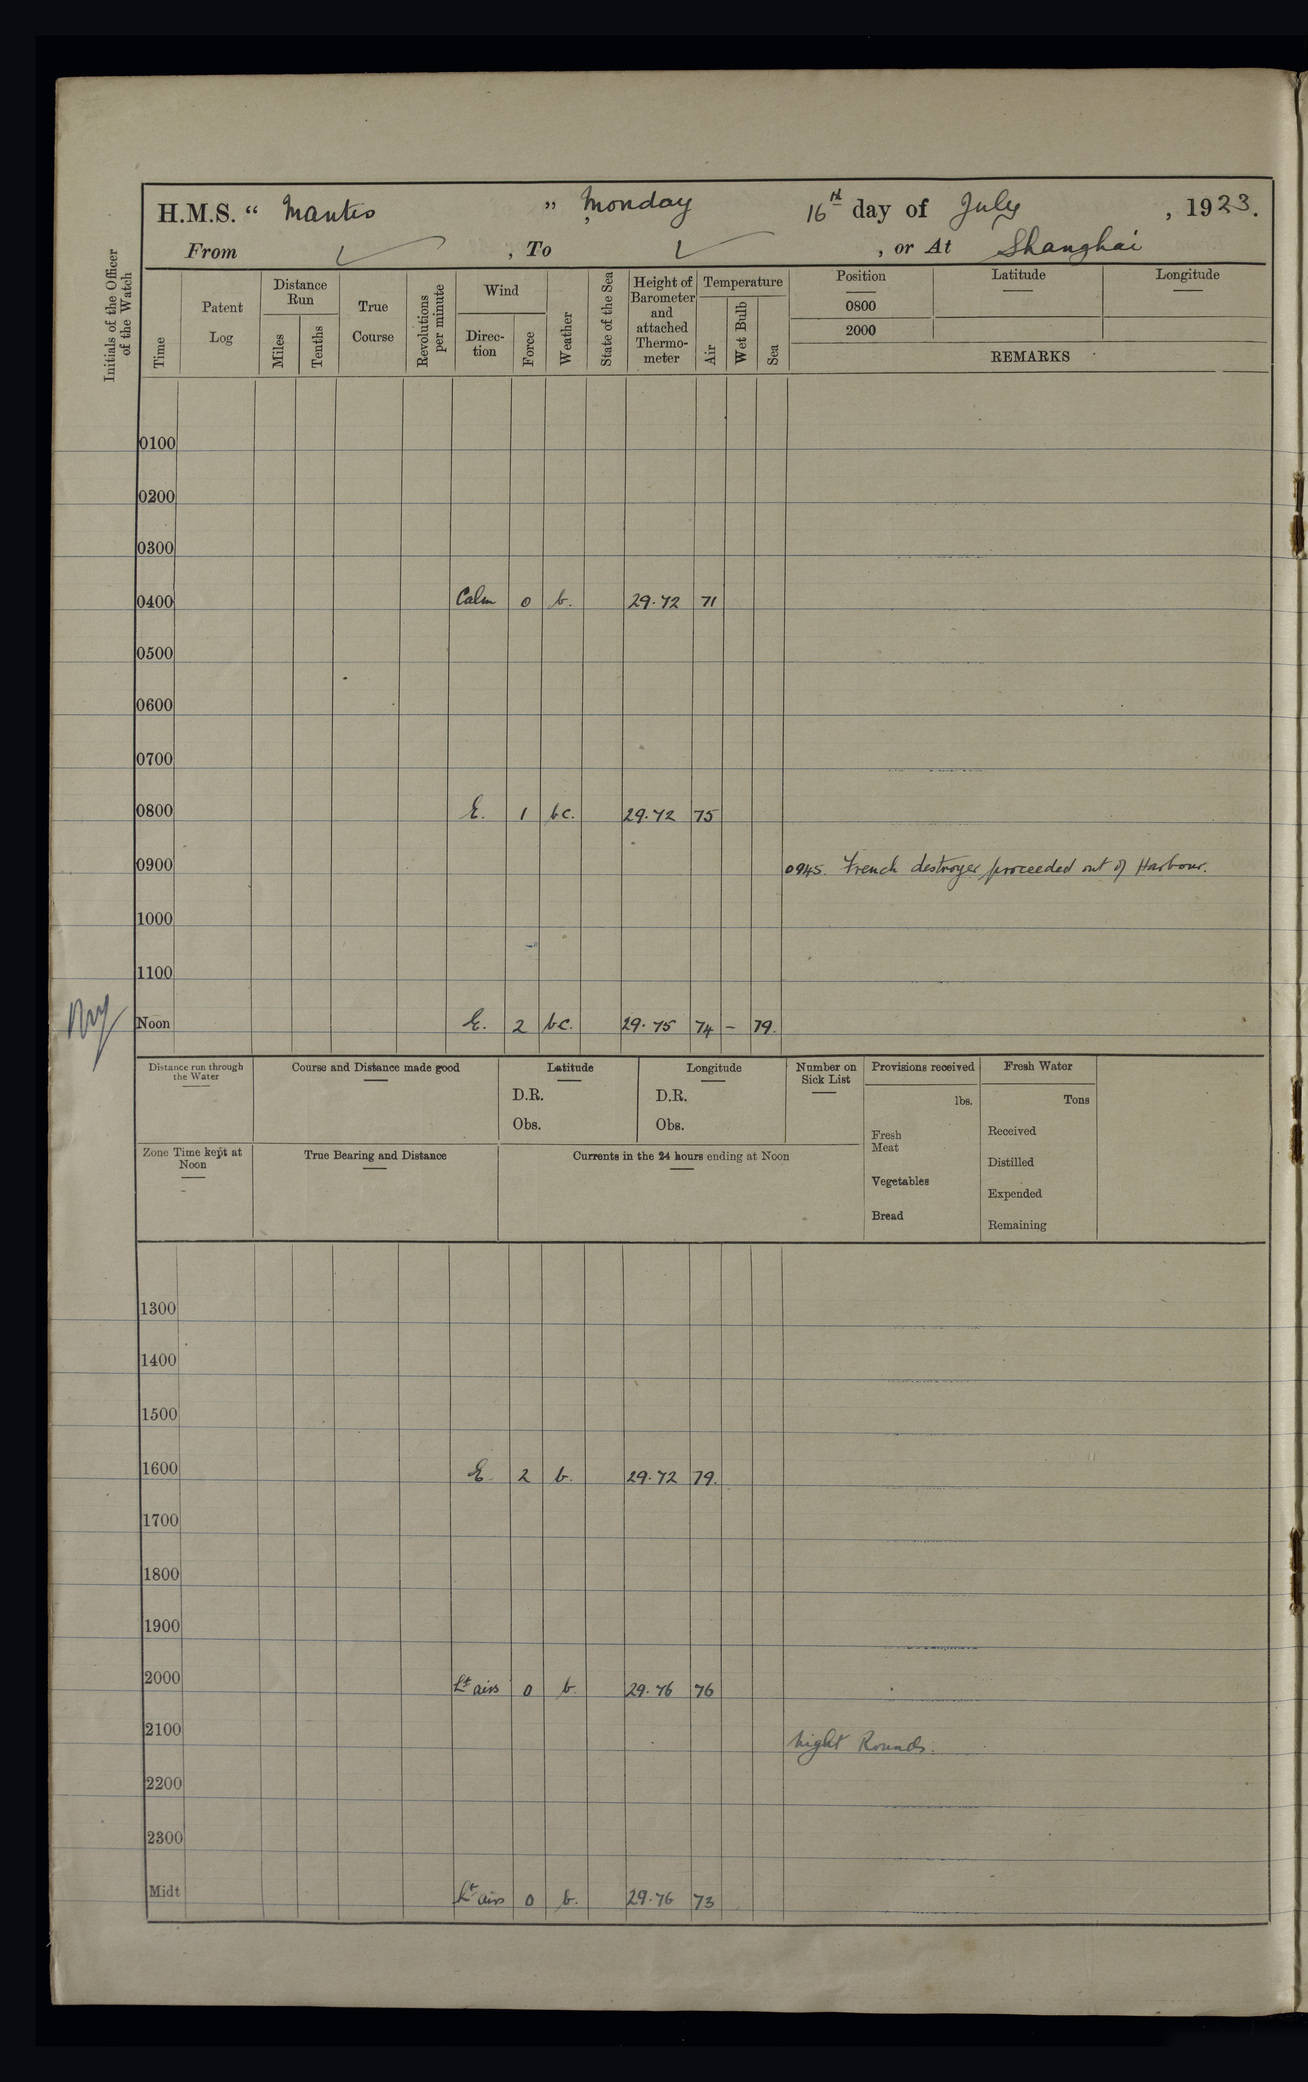 H.M.S. “ Mantis ” Monday 16th day of July , 1923.
From ✓ , To ✓ , or At Shanghai
Initials of the Officer of the Watch
Time
Patent Log
Distance Run
Miles
Tenths
True Course
Revolutions per minute
Wind
Direc-tion
Force
Weather
State of the Sea
Height of Barometer and attached Thermo-meter
Temperature
Air
Wet Bulb
Sea
Position Latitude Longitude
0800
2000
REMARKS
0100
0200
0300
0400 Calm 0 b. 29.72 71
0500
0600
0700
0800 E. 1 bc. 29.72 75
0900 0945. French destroyer proceeded out of Harbour.
1000
1100
Noon E. 2 bc. 29.75 74 – 79.
Distance run through the Water
Course and Distance made good
Latitude
D.R.
Obs.
Longitude
D.R.
Obs.
Number on Sick List
Provisions received
lbs.
Fresh Meat
Vegetables
Bread
Fresh Water
Tons
Received
Distilled
Expended
Remaining
Zone Time kept at Noon
–
True Bearing and Distance
Currents in the 24 hours ending at Noon
1300
1400
1500
1600 E 2 b. 29.72 79.
1700
1800
1900
2000 Lt airs 0 b. 29.76 76
2100 Night Rounds.
2200
2300
Midt Lt airs 0 b. 29.76 73